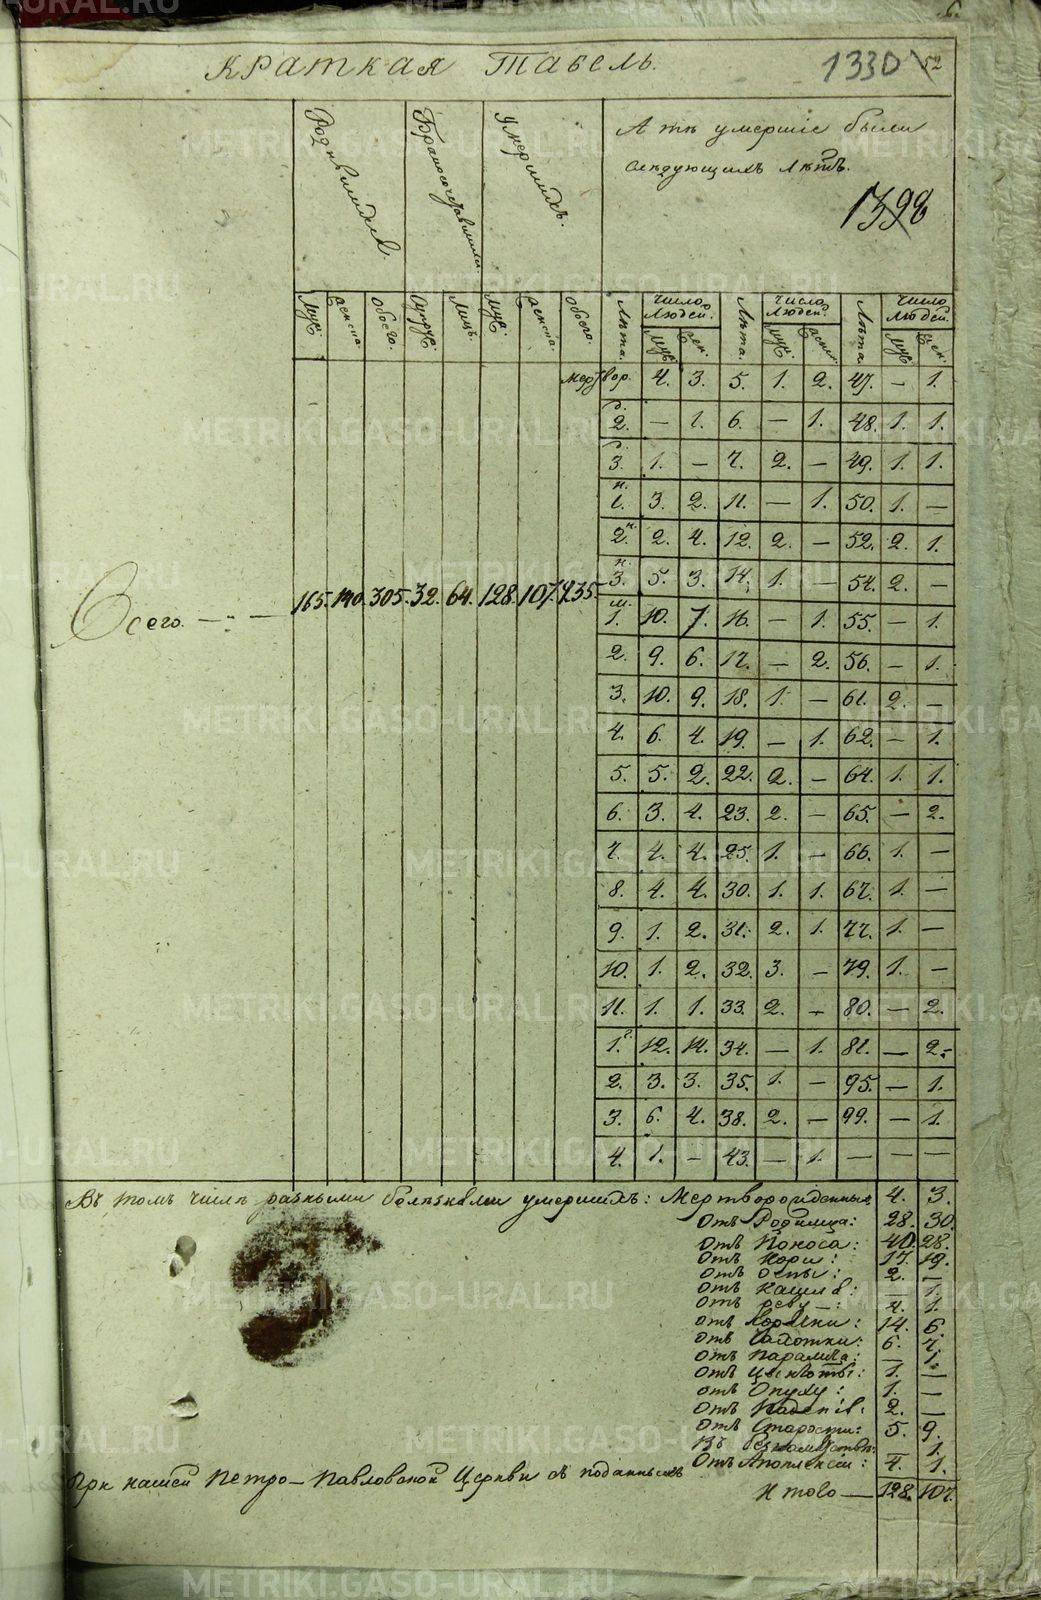 6.
Краткая Табель.
1330 52
Родившихся. Бракосочетавшихся. Умершихъ. А тѣ умершіе были
слѣдующихъ лѣтъ.
1398
Муж. Женска. Обоего. Супруж. Лицъ. Муж. Женска. Обоего. Лѣта. Число Людей. Муж. Жен. Лѣта. Число Людей. Муж. Женск. Лѣта. Число Людей. Муж. Жен.
Мертвор. 4. 3. 5. 1. 2. 47. — 1.
2. — 1. 6. — 1. 48. 1. 1.
3. 1. — 7. 2. — 49. 1. 1.
н. 1. 3. 2. 11. — 1. 50. 1. —
2. н. 2. 4. 12. 2. — 52. 2. 1.
н. 3. 5. 3. 14. 1. — 54. 2. —
Всего. — 165. 140. 305. 32. 64. 128. 107. 235.
м. 1. 10. 7. 16. — 1. 55. — 1.
2. 9. 6. 17. — 2. 56. — 1.
3. 10. 9. 18. 1. — 61. 2. —
4. 6. 4. 19. — 1. 62. — 1.
5. 5. 2. 22. 2. — 64. 1. 1.
6. 3. 4. 23. 2. — 65. — 2.
7. 4. 4. 25. 1. — 66. 1. —
8. 4. 4. 30. 1. 1. 67. 1. —
9. 1. 2. 31. 2. 1. 77. 1. —
10. 1. 2. 32. 3. — 79. 1. —
11. 1. 1. 33. 2. — 80. — 2.
1. г. 12. 14. 34. — 1. 81. — 2.
2. 3. 3. 35. 1. — 95. — 1.
3. 6. 4. 38. 2. — 99. — 1.
4. 1. — 43. — 1. — — —
Въ томъ числѣ разными болѣзнями умершихъ: Мертворожденныхъ 4. 3.
Отъ Родимца: 28. 30.
Отъ Поноса: 40. 28.
Отъ Кори: 17. 19.
Отъ оспы: 2. —
Отъ Кашля: — 1.
Отъ 4. 1.
Отъ Горячки: 14. 6.
Отъ Чахотки: 6. 7.
Отъ Паралича: — 1.
Отъ Цынготы: 1. —
Отъ Опуху: 1. —
Отъ 2. —
Отъ Старости: 5. 9.
1.
Отъ Апоплексіи: 4. 1.
При нашей Петро-Павловской Церкви
Итого — 128. 107.
METRIKI.GASO-URAL.RU